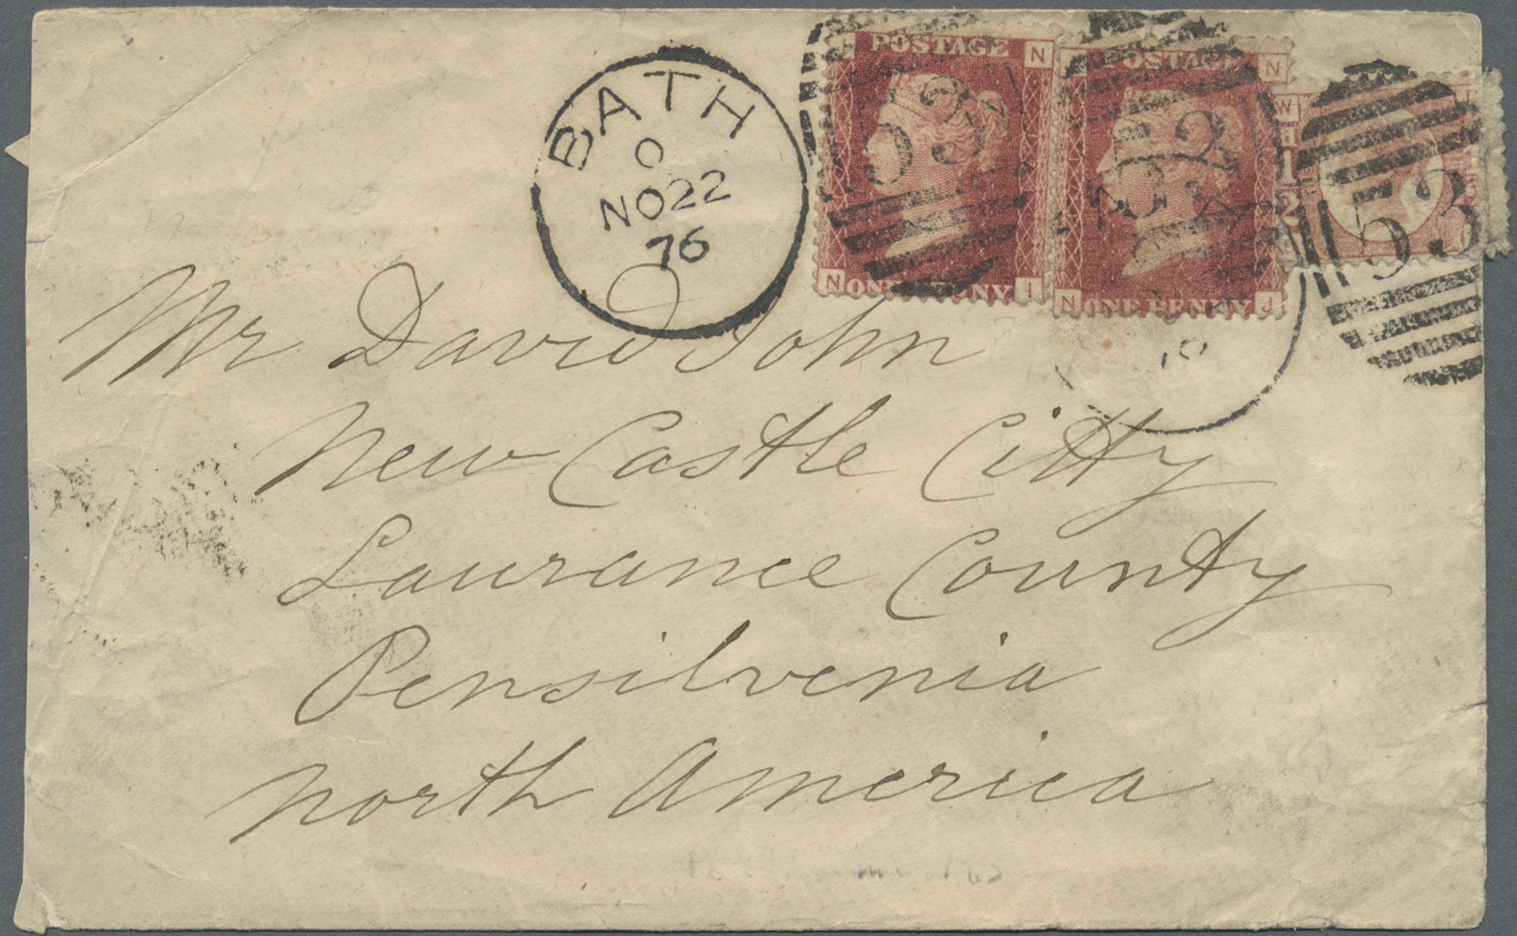 BATH
O
NO22
76
POSTAGE N
N ONE PENNY I
53
POSTAGE N
N ONE PENNY I
53
W
1
2
53
Mr David John
New Castle Citty
Laurance County
Pensilvenia
North America